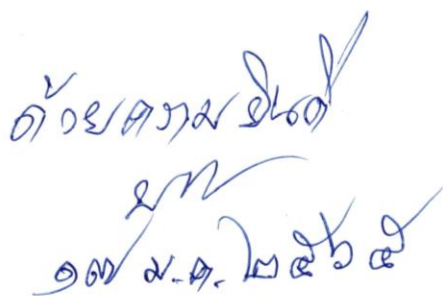 ด้วยความยินดี
๑๗ ม.ค. ๒๕๖๕